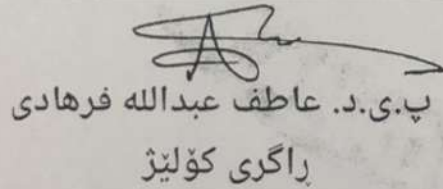 پ.ی.د. عاطف عبدالله فرهادی
ڕاگری کۆلێژ